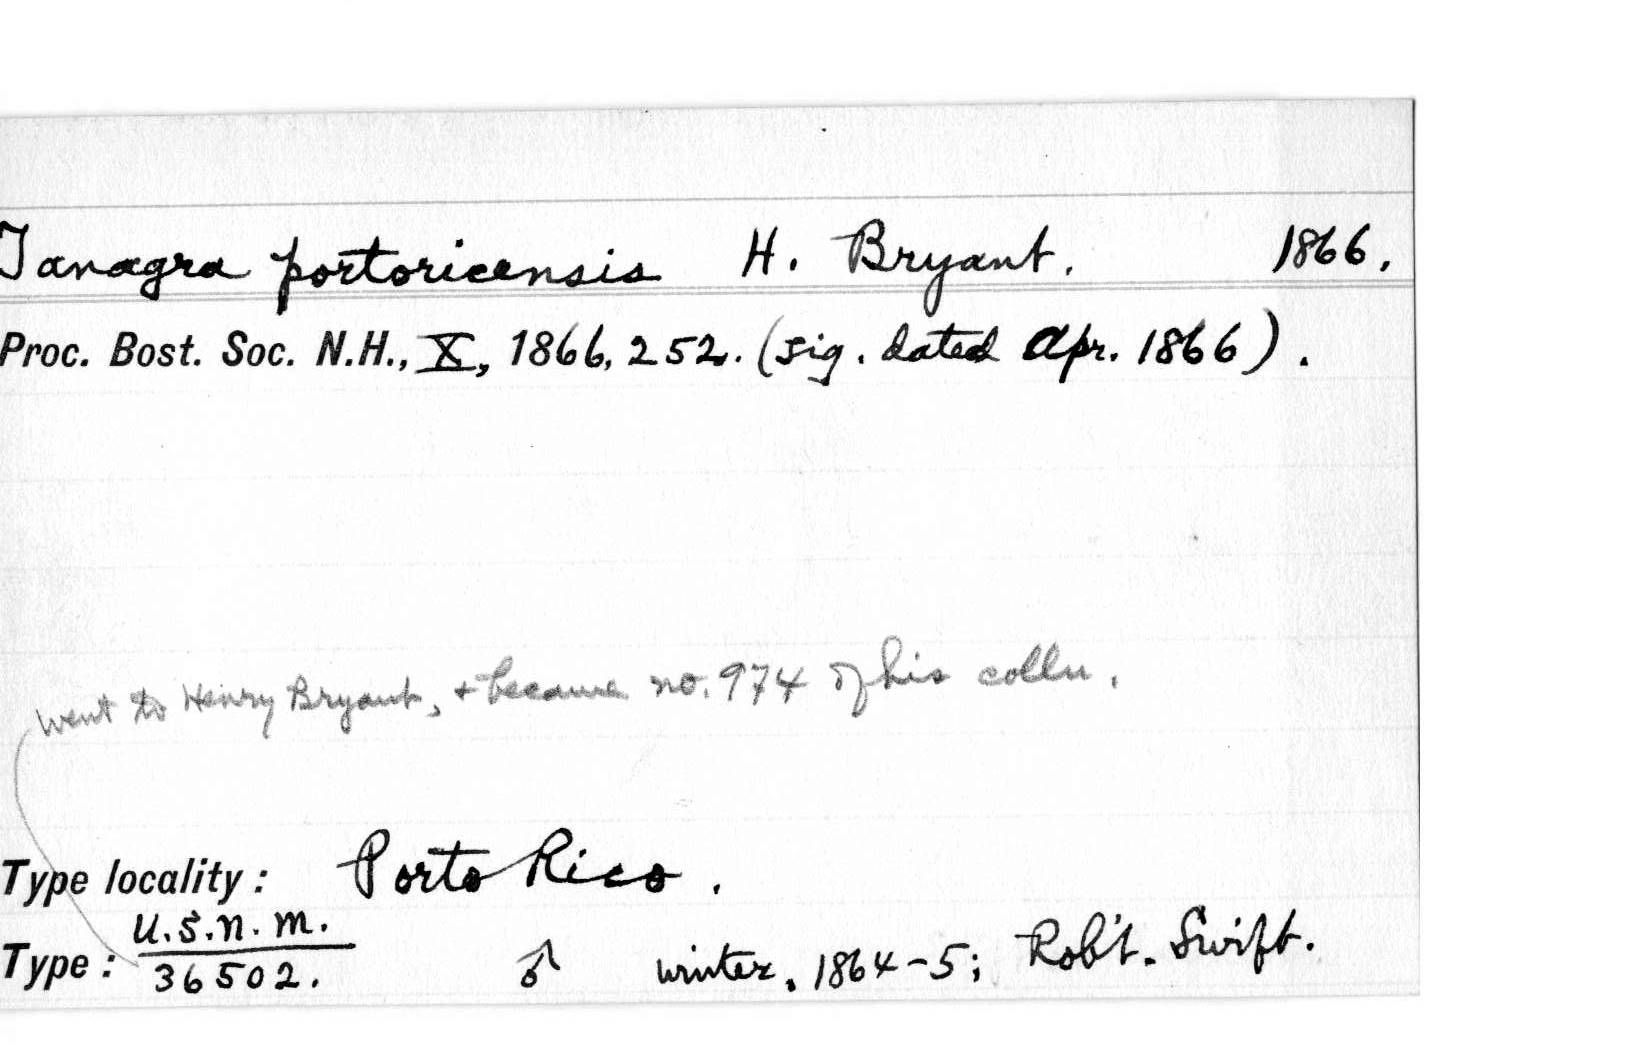 Tanagra portoricensis H. Bryant. 1866.
Proc. Bost. Soc. N.H., X, 1866, 252. (sig. dated Apr. 1866).
went to Henry Bryant, + became no. 974 of his colln.
Type locality: Porto Rico.
U.S.N.M.
Type: 36502. ♂ winter. 1864-5; Rob't. Swift.